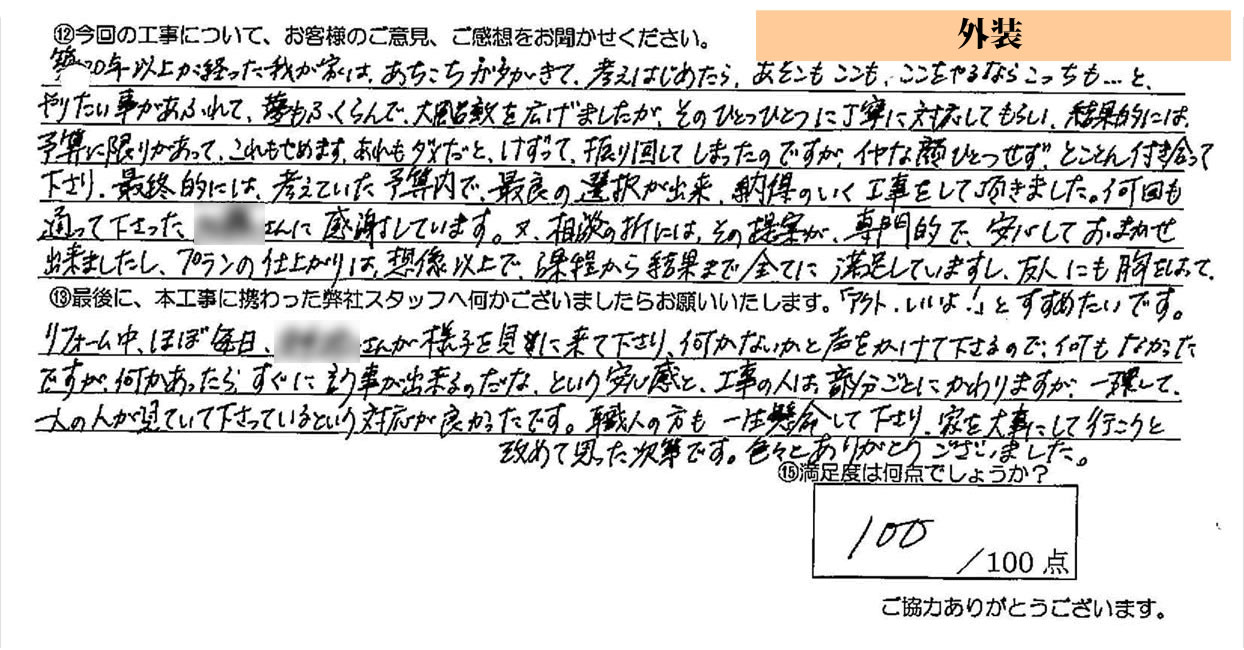 外装
⑫今回の工事について、お客様のご意見、ご感想をお聞かせください。
築20年以上が経った我が家は、あちこちガタがきて、考えはじめたら、あそこもここも、ここをやるならこっちも…と、
やりたい事があふれて、夢もふくらんで、大風呂敷を広げましたが、そのひとつひとつに丁寧に対応してもらい、結果的には、
予算に限りがあって、これもせめます、あれもダメだと、けずって、振り回してしまったのですが、イヤな顔ひとつせず、とことん付き合って
下さり、最終的には、考えていた予算内で、最良の選択が出来、納得のいく工事をして頂きました。何回も
通って下さった さんに感謝しています。又、相談の折には、その提案が、専門的で、安心しておまかせ
出来ましたし、プランの仕上がりは、想像以上で、課程から結果まで全てに満足していますし、友人にも胸をはって、
⑬最後に、本工事に携わった弊社スタッフへ何かございましたらお願いいたします。「アクト、いいよ!」とすすめたいです。
リフォーム中、ほぼ毎日、 さんが様子を見に来て下さり、何かないかと声をかけて下さるので、何もなかった
ですが、何かあったら、すぐに言う事が出来るのだな、という安心感と、工事の人は、部分ごとにかわりますが、一環して、
一人の人が見ていて下さっているという対応が良かったです。職人の方も一生懸命して下さり、家を大事にして行こうと
改めて思った次第です。色々とありがとうございました。
⑮満足度は何点でしょうか？
100
／100 点
ご協力ありがとうございます。